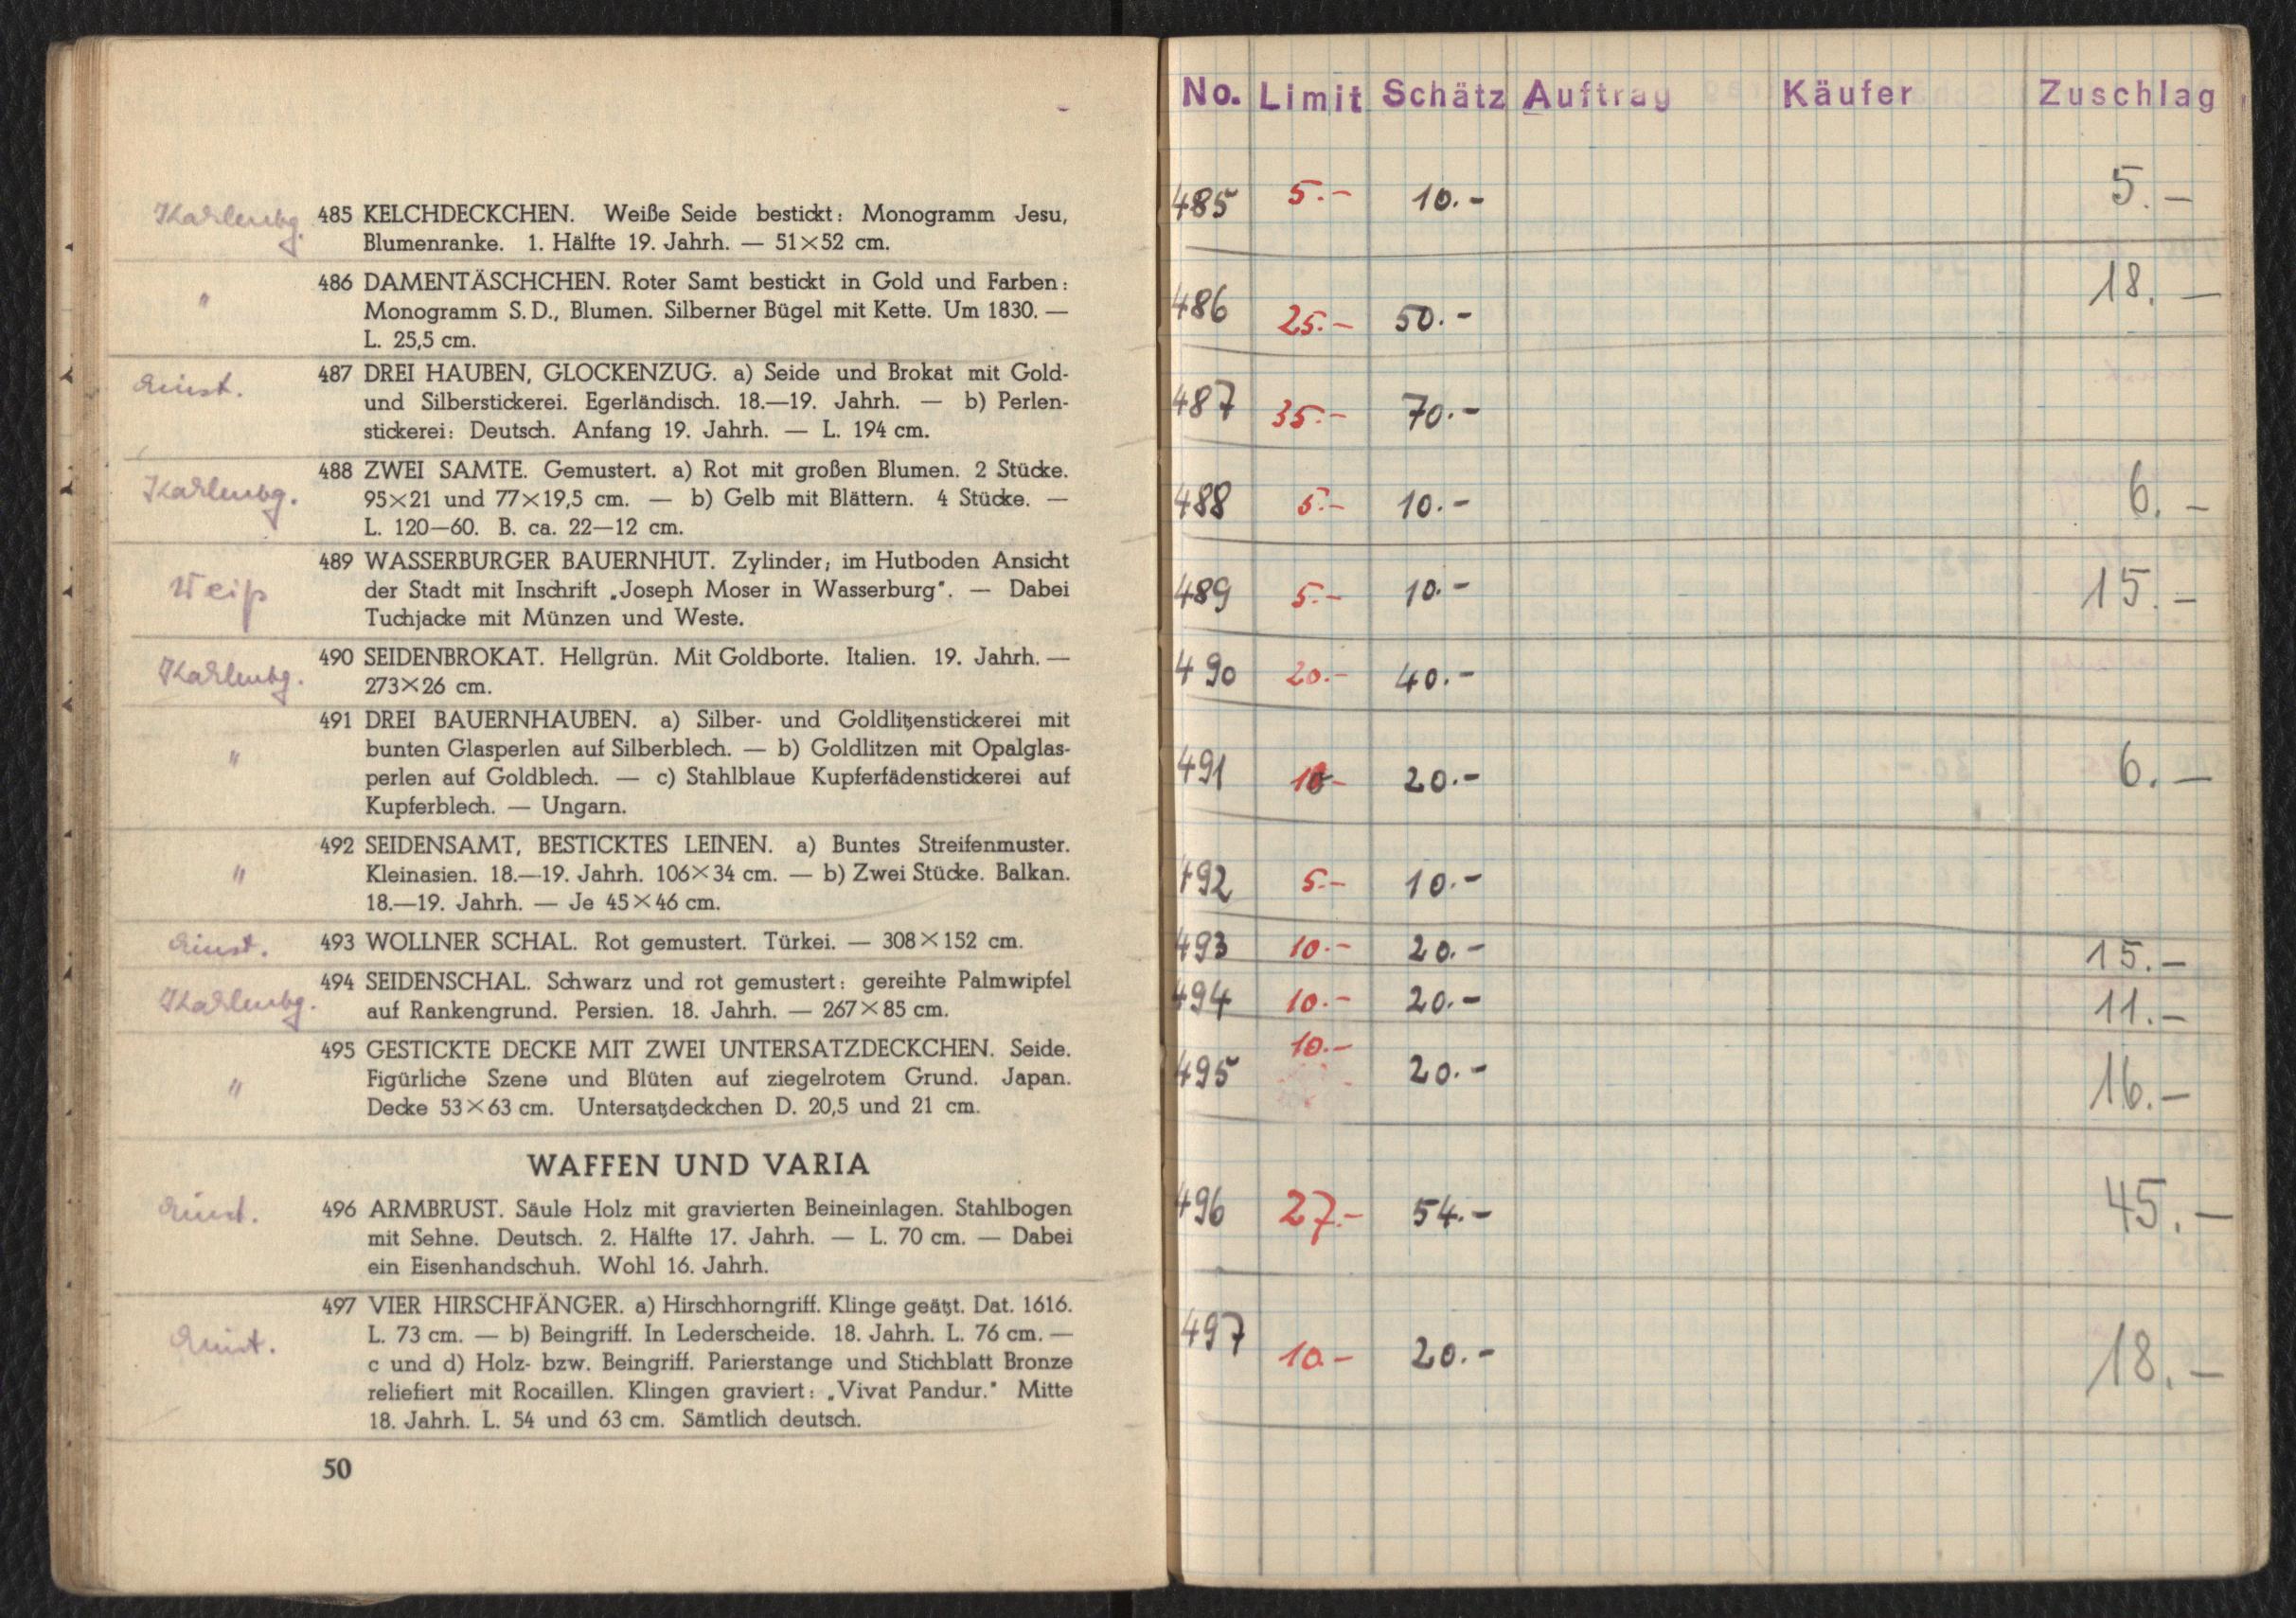 Karlenbg.
485 KELCHDECKCHEN. Weiße Seide bestickt: Monogramm Jesu,
Blumenranke. 1. Hälfte 19. Jahrh. — 51×52 cm.
"
486 DAMENTÄSCHCHEN. Roter Samt bestickt in Gold und Farben:
Monogramm S. D., Blumen. Silberner Bügel mit Kette. Um 1830. —
L. 25,5 cm.
487 DREI HAUBEN, GLOCKENZUG. a) Seide und Brokat mit Gold-
und Silberstickerei. Egerländisch. 18.—19. Jahrh. — b) Perlen-
stickerei: Deutsch. Anfang 19. Jahrh. — L. 194 cm.
Karlenbg.
488 ZWEI SAMTE. Gemustert. a) Rot mit großen Blumen. 2 Stücke.
95×21 und 77×19,5 cm. — b) Gelb mit Blättern. 4 Stücke. —
L. 120—60. B. ca. 22—12 cm.
Weiß
489 WASSERBURGER BAUERNHUT. Zylinder; im Hutboden Ansicht
der Stadt mit Inschrift „Joseph Moser in Wasserburg". — Dabei
Tuchjacke mit Münzen und Weste.
Karlenbg.
490 SEIDENBROKAT. Hellgrün. Mit Goldborte. Italien. 19. Jahrh. —
273×26 cm.
"
491 DREI BAUERNHAUBEN. a) Silber- und Goldlitzenstickerei mit
bunten Glasperlen auf Silberblech. — b) Goldlitzen mit Opalglas-
perlen auf Goldblech. — c) Stahlblaue Kupferfädenstickerei auf
Kupferblech. — Ungarn.
"
492 SEIDENSAMT, BESTICKTES LEINEN. a) Buntes Streifenmuster.
Kleinasien. 18.—19. Jahrh. 106×34 cm. — b) Zwei Stücke. Balkan.
18.—19. Jahrh. — Je 45×46 cm.
493 WOLLNER SCHAL. Rot gemustert. Türkei. — 308×152 cm.
Karlenbg.
494 SEIDENSCHAL. Schwarz und rot gemustert: gereihte Palmwipfel
auf Rankengrund. Persien. 18. Jahrh. — 267×85 cm.
"
495 GESTICKTE DECKE MIT ZWEI UNTERSATZDECKCHEN. Seide.
Figürliche Szene und Blüten auf ziegelrotem Grund. Japan.
Decke 53×63 cm. Untersatzdeckchen D. 20,5 und 21 cm.
WAFFEN UND VARIA
496 ARMBRUST. Säule Holz mit gravierten Beineinlagen. Stahlbogen
mit Sehne. Deutsch. 2. Hälfte 17. Jahrh. — L. 70 cm. — Dabei
ein Eisenhandschuh. Wohl 16. Jahrh.
497 VIER HIRSCHFÄNGER. a) Hirschhorngriff. Klinge geätzt. Dat. 1616.
L. 73 cm. — b) Beingriff. In Lederscheide. 18. Jahrh. L. 76 cm. —
c und d) Holz- bzw. Beingriff. Parierstange und Stichblatt Bronze
reliefiert mit Rocaillen. Klingen graviert: „Vivat Pandur." Mitte
18. Jahrh. L. 54 und 63 cm. Sämtlich deutsch.
50
No. Limit Schätz Auftrag Käufer Zuschlag
485 5.- 10.- 5.-
486 25.- 50.- 18.-
487 35.- 70.-
488 5.- 10.- 6.-
489 5.- 10.- 15.-
490 20.- 40.-
491 10- 20.- 6.-
492 5.- 10.-
493 10.- 20.- 15.-
494 10.- 20.- 11.-
495 10.- 20.- 16.-
496 27.- 54.- 45.-
497 10.- 20.- 18.-